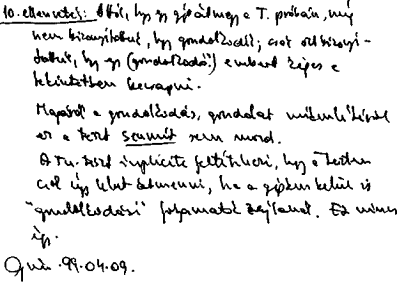 10. ellenvetés: Attól, hogy egy gép átmegy a T. próbán, még
nem bizonyítottuk, hogy gondolkodik; csak azt bizonyí-
tottuk, hogy egy (gondolkodó!) embert képes e
tekintetben becsapni.
Magáról a gondolkodás, gondolat mibenlétéről
ez a teszt semmit sem mond.
A Tu. teszt implicite feltételezi, hogy a teszten
csak úgy lehet átmenni, ha a gépben belül is
"gondolkodási" folyamatok zajlanak. Ez nincs
így.
99.04.09.